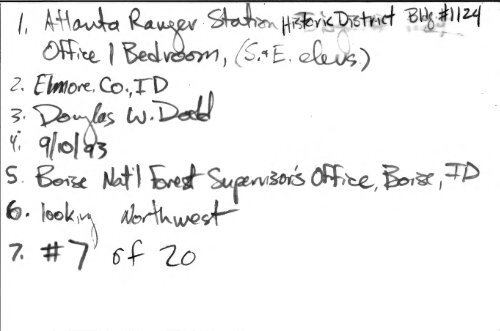 1. Atlanta Ranger Station Historic District Bldg #1124
Office 1 Bedroom, (S.+E. elevs)
2. Elmore, Co., ID
3. Douglas W. Dodd
4. 9/10/93
5. Boise Nat'l Forest Supervisor's Office, Boise, ID
6. looking Northwest
7. #7 of 20